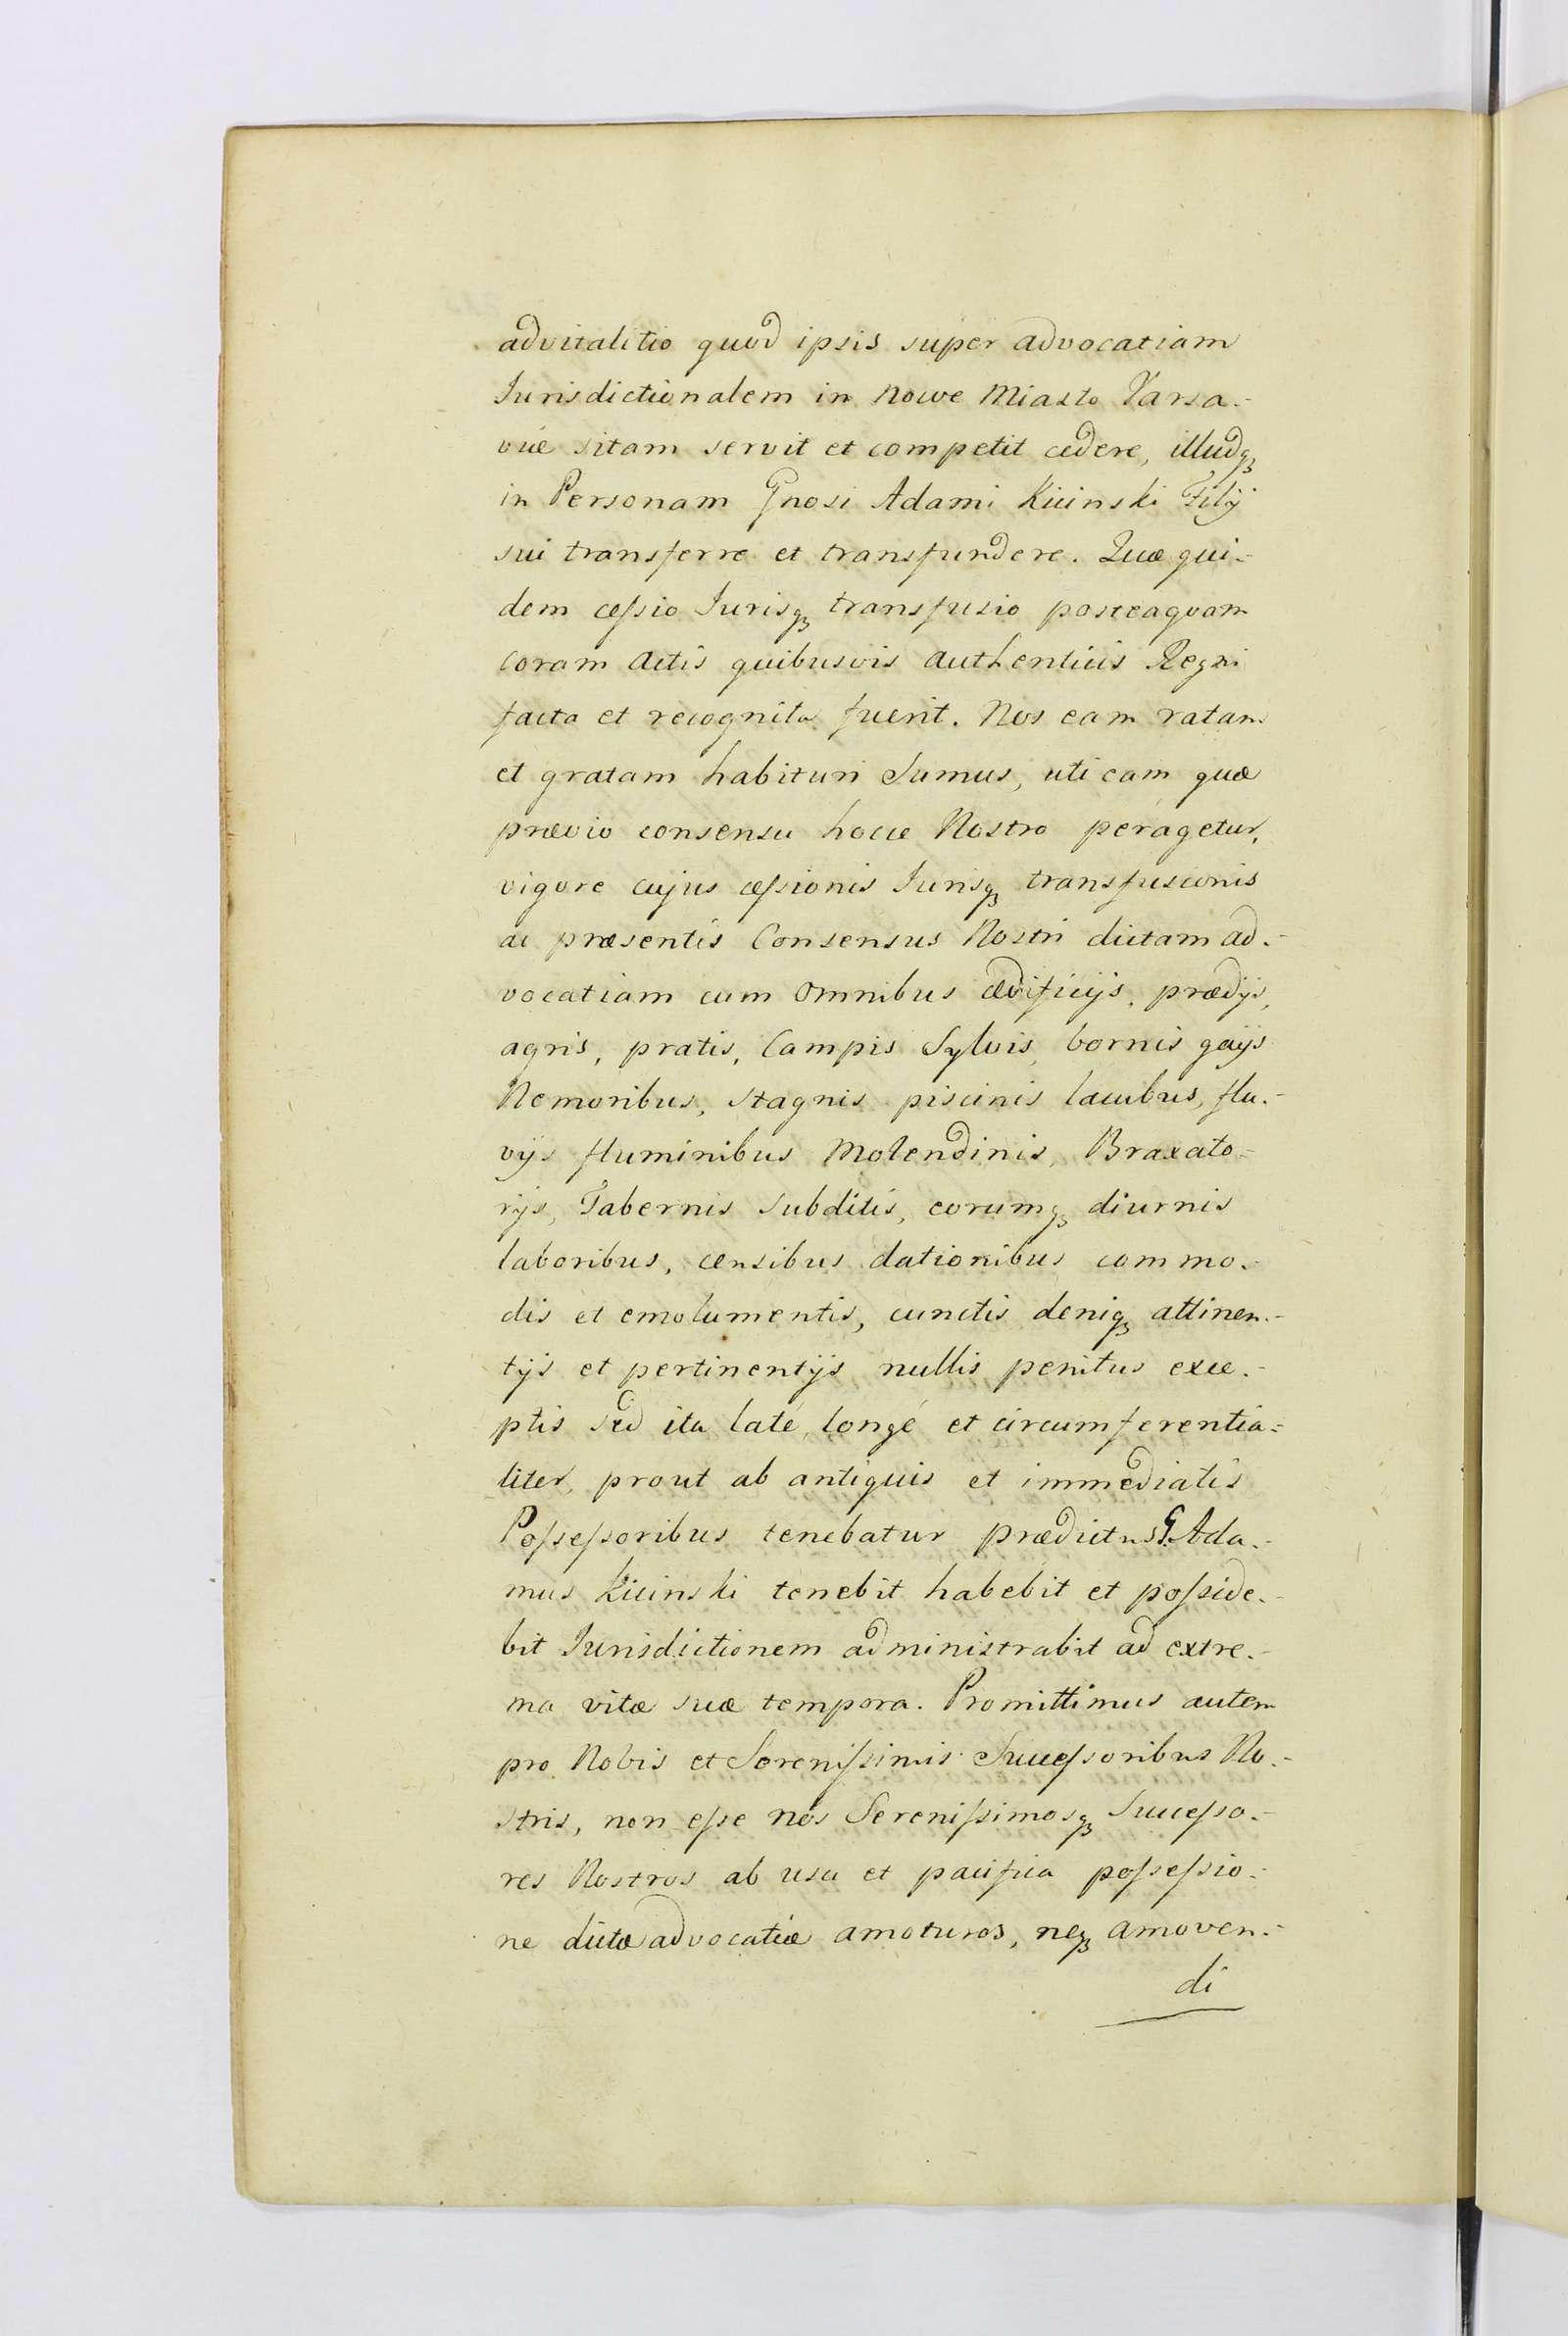 advitalitio quod ipsis super advocatiam
Jurisdictionalem in Nowe Miasto Varsa-
viæ sitam servit et competit cedere, illudqꝫ
in Personam Gnosi Adami Kicinski Filij
sui transferre et transfundere. Quæ qui-
dem ceſsio Jurisqꝫ transfusio posteaquam
coram Actis quibusvis authenticis Regni
facta et recognita fuerit. Nos eam ratam
et gratam habituri Sumus, uti eam quæ
prævio consensu hocce Nostro peragetur,
vigore cujus ceſsionis Jurisqꝫ transfusionis
ac præsentis Consensus Nostri dictam ad-
vocatiam cum omnibus ædificijs, prædijs,
agris, pratis, Campis Sylvis, borris gajis
Nemoribus, stagnis piscinis lacubus, flu-
vijs fluminibus Molendinis, Braxato-
rijs, Tabernis subditis, eorumqꝫ diurnis
laboribus, censibus dationibus commo-
dis et emolumentis, cunctis deniqꝫ attinen-
tijs et pertinentijs nullis penitus exce-
ptis sed ita laté, longé et circumferentia-
liter, prout ab antiquis et immediatis
Poſseſsoribus tenebatur prædictus G. Ada-
mus Kicinski tenebit habebit et poſside-
bit Jurisdictionem administrabit ad extre-
ma vitæ suæ tempora. Promittimus autem
pro Nobis et Sereniſsimis Succeſsoribus No-
stris, non eſse nos Sereniſsimosqꝫ Succeſso-
res Nostros ab usu et pacifica poſseſsio-
ne dictæ advocatiæ amoturos, neqꝫ amoven-
di